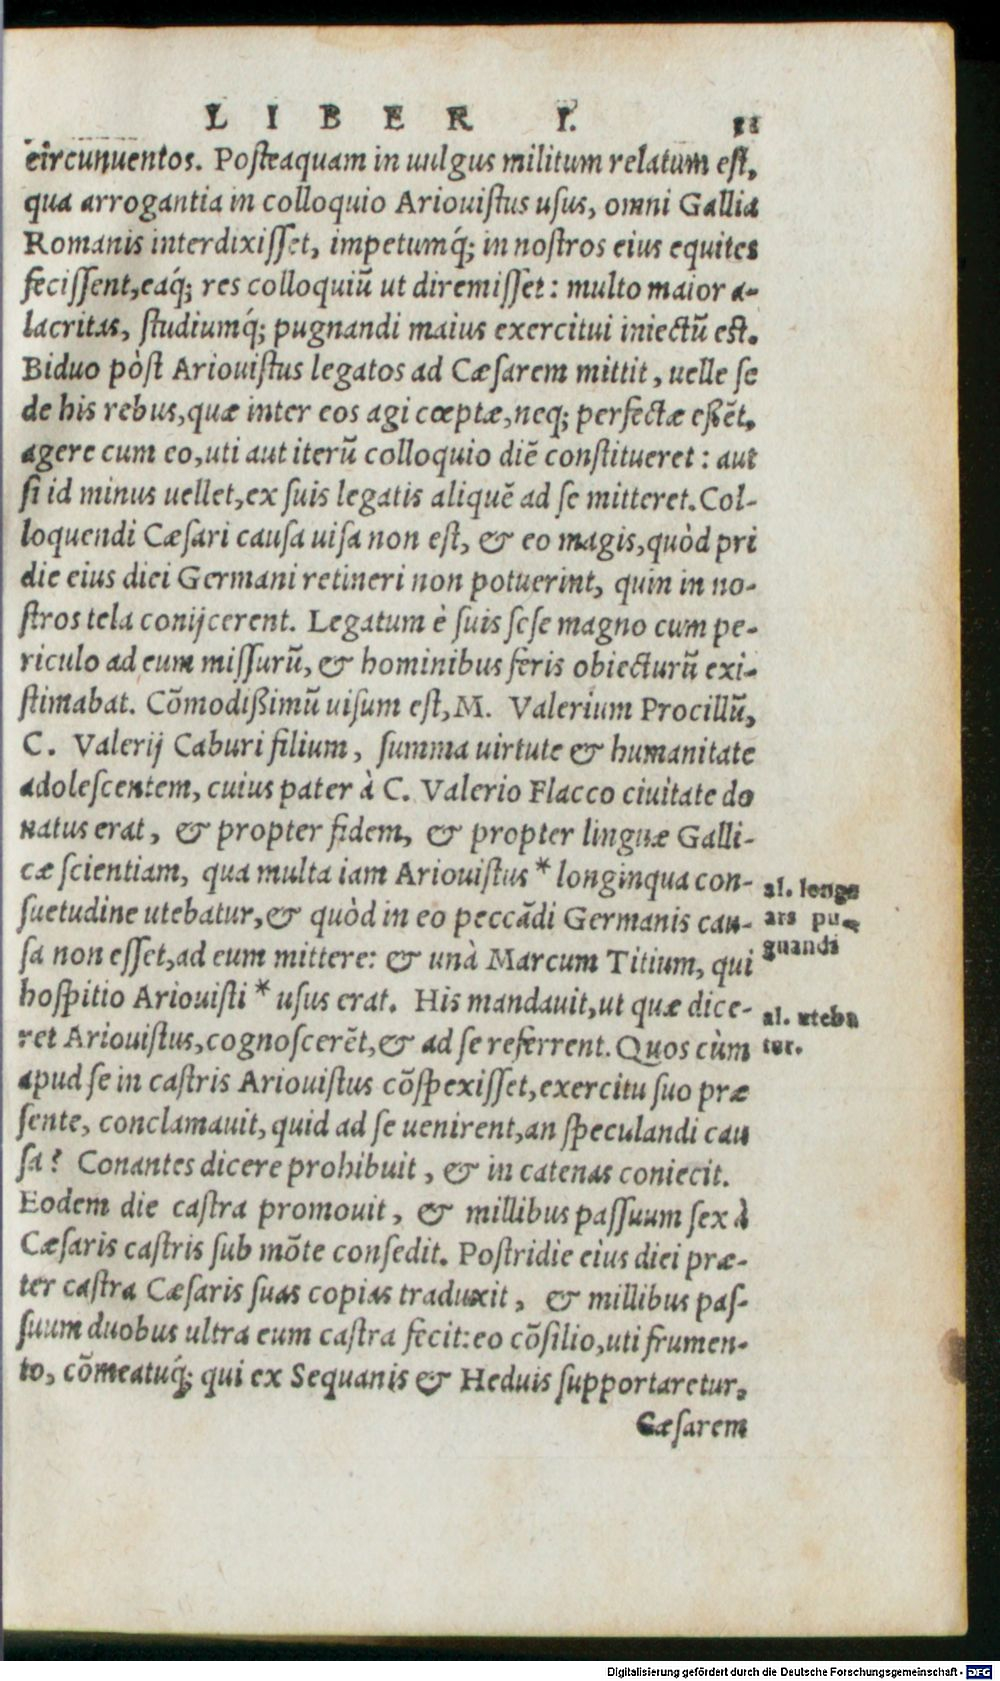 LIBER I.
circunuentos. Posteaquam in uulgus militum relatum est,
qua arrogantia in colloquio Ariouistus usus, omni Gallia
Romanis interdixisset, impetumq́; in nostros eius equites
fecissent, eaq́; res colloquiũ ut diremisset: multo maior a-
lacritas, studiumq́; pugnandi maius exercitui iniectũ est.
Biduo pòst Ariouistus legatos ad Cæsarem mittit, uelle se
de his rebus, quæ inter eos agi cœptæ, neq; perfectæ eßẽt,
agere cum eo, uti aut iterũ colloquio diẽ constitueret: aut
si id minus uellet, ex suis legatis aliquẽ ad se mitteret. Col-
loquendi Cæsari causa uisa non est, & eo magis, quòd pri
die eius diei Germani retineri non potuerint, quin in no-
stros tela conijcerent. Legatum è suis sese magno cum pe-
riculo ad eum missurũ, & hominibus feris obiecturũ exi-
stimabat. Cõmodißimũ uisum est, M. Valerium Procillũ,
C. Valerij Caburi filium, summa uirtute & humanitate
adolescentem, cuius pater à C. Valerio Flacco ciuitate do
natus erat, & propter fidem, & propter linguæ Galli-
cæ scientiam, qua multa iam Ariouistus * longinqua con-
suetudine utebatur, & quòd in eo peccãdi Germanis cau-
sa non esset, ad eum mittere: & unà Marcum Titium, qui
hospitio Ariouisti * usus erat. His mandauit, ut quæ dice-
ret Ariouistus, cognoscerẽt, & ad se referrent. Quos cùm
apud se in castris Ariouistus cõspexisset, exercitu suo præ
sente, conclamauit, quid ad se uenirent, an speculandi cau
sa? Conantes dicere prohibuit, & in catenas coniecit.
Eodem die castra promouit, & millibus passuum sex à
Cæsaris castris sub mõte consedit. Postridie eius diei præ-
ter castra Cæsaris suas copias traduxit, & millibus pas-
suum duobus ultra eum castra fecit: eo cõsilio, uti frumen-
to, cõmeatuq́; qui ex Sequanis & Heduis supportaretur,
Cæsarem
al. longe
ars pu-
gnandi
al. uteba
tur.
Digitalisierung gefördert durch die Deutsche Forschungsgemeinschaft - DFG